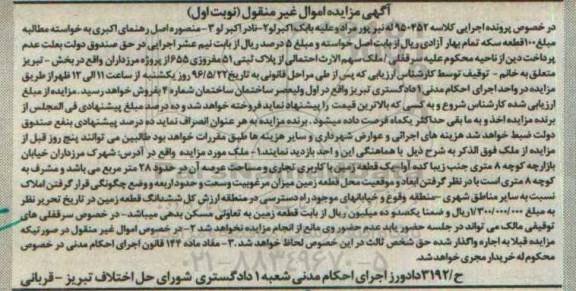 آگهی مزایده اموال غیر منقول (نوبت اول)
در خصوص پرونده اجرایی کلاسه ۹۵۰۴۵۲ له نیر پور مراد و علیه بابک اکبرلو ۲- نادر اکبرلو ۳- منصوره اصل رهنمای اکبری به خواسته مطالبه
مبلغ ۱۰۰ قطعه سکه تمام بهار آزادی ریال از بابت اصل خواسته و مبلغ ۵ درصد ریال از بابت نیم عشر اجرایی در حق صندوق دولت بعلت عدم
پرداخت دین از ناحیه محکوم علیه سرقفلی / ملک سهم الارث احتمالی از پلاک ثبتی ۵۱ مفروزی ۶۵۵ از پروژه مرزداران واقع در بخش - تبریز
متعلق به خانم - توقیف توسط کارشناس ارزیابی که پس از طی مراحل قانونی به تاریخ ۹۶/۵/۲۲ روز یکشنبه از ساعت ۱۱ الی ۱۲ ظهر از طریق
مزایده در واحد اجرای احکام مدنی ۱ دادگستری تبریز واقع در اول ولیعصر ساختمان شماره ۴ بفروش خواهد رسید. مزایده از مبلغ
ارزیابی شده کارشناس شروع و به کسی که بالاترین قیمت را پیشنهاد نماید فروخته خواهد شد و ده درصد مبلغ پیشنهادی فی المجلس از
برنده مزایده اخذ و به ما بقی حداکثر یکماه فرصت داده میشود. برنده مزایده به هر عنوان انصراف نماید ده درصد پیشنهادی بنفع صندوق
دولت ضبط خواهد شد هزینه های اجرائی و عوارض شهرداری و سایر هزینه ها طبق مقررات خواهد بود طالبین می توانند پنج روز قبل از
مزایده از ملک فوق الذکر به شرح ذیل با هماهنگی این واحد بازدید نمایند: ۱- ملک مورد مزایده واقع در آدرس: شهرک مرزداران خیابان
بازارچه کوچه ۸ متری جنب زیبا کده آوا یک قطعه زمین با کاربری تجاری و مساحت عرصه آن در حدود ۲۸ متر مربع می باشد و مشرف به
کوچه ۸ متری است با در نظر گرفتن ابعاد و موقعیت محل قطعه زمین میزان مرغوبیت وسعت و حدود اربعه و وضع چگونگی قرار گرفتن املاک
نسبت به سایر مناطق شهری - منطقه وقوع و خیابانهای موجود راه دسترسی در منطقه ارزش کل ششدانگ قطعه زمین در تاریخ تحریر نظر
به مبلغ ۱/۳۰۰/۰۰۰/۰۰۰ ریال و ضمنا یکصد و ده میلیون ریال از بابت قطعه زمین به تعاونی مسکن بدهی میباشد- در خصوص سرقفلی های
توقیفی مالک می تواند در جلسه حضور یابد عدم حضور وی مانع از انجام مزایده نخواهد شد ۲- در خصوص اموال غیر منقول در صورتیکه
مزایده قبلا به اجاره واگذار شده حق شخص ثالث در این خصوص لحاظ خواهد شد. ۳- مفاد ماده ۱۴۴ قانون اجرای احکام مدنی در خصوص
محکوم له خریدار مجری خواهد شد.
ح/۳۱۹۲ دادورز اجرای احکام مدنی شعبه ۱ دادگستری شورای حل اختلاف تبریز - قربانی
۰۲۱-۸۸۳۴۹۶۷۰-۵